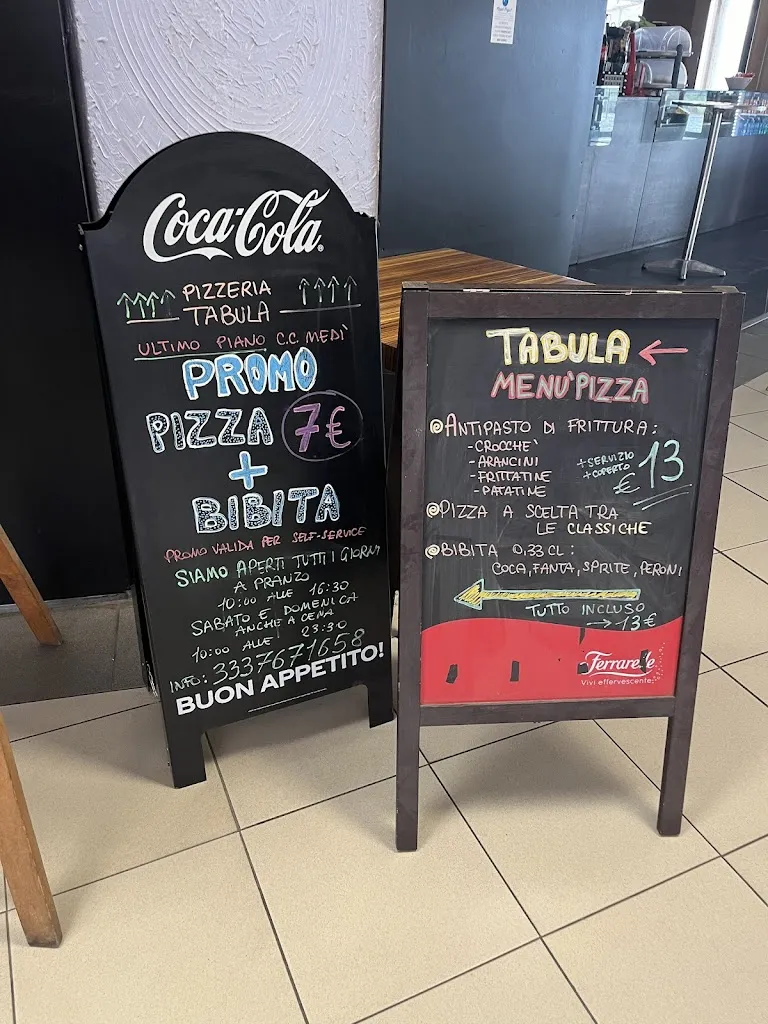 Coca-Cola
PIZZERIA
TABULA
ULTIMO PIANO C.C. MEDÌ
PROMO
PIZZA 7€
+
BIBITA
PROMO VALIDA PER SELF-SERVICE
SIAMO APERTI TUTTI I GIORNI
A PRANZO
10:00 ALLE 16:30
SABATO E DOMENICA
ANCHE A CENA
10:00 ALLE 23:30
INFO: 3337671658
BUON APPETITO!
TABULA
MENU' PIZZA
ANTIPASTO DI FRITTURA:
- CROCCHE'
- ARANCINI
- FRITTATINE
- PATATINE
+ SERVIZIO
+ COPERTO
€ 13
PIZZA A SCELTA TRA
LE CLASSICHE
BIBITA 0,33 CL:
COCA, FANTA, SPRITE, PERONI
TUTTO INCLUSO
→ 13€
Ferrarelle
Vivi effervescente.